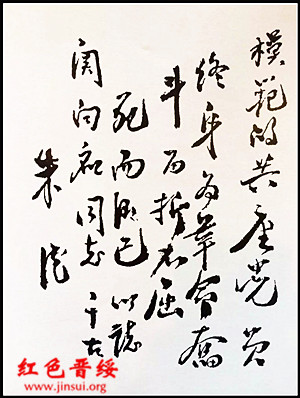 模範的共产党员
终身为革命奮
斗百折不屈
死而后已 以誌
関向应同志千古
朱德
红色晋绥
www.jinsui.org